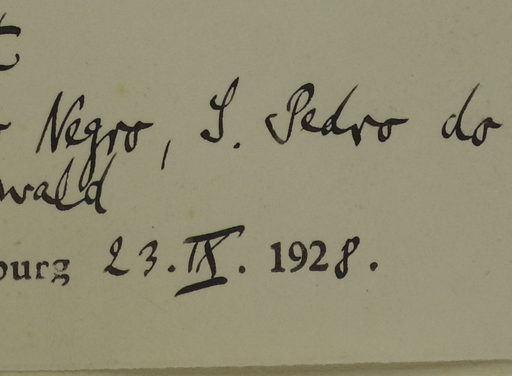 Negro, S. Pedro do
wald
burg 23.IX. 1928.